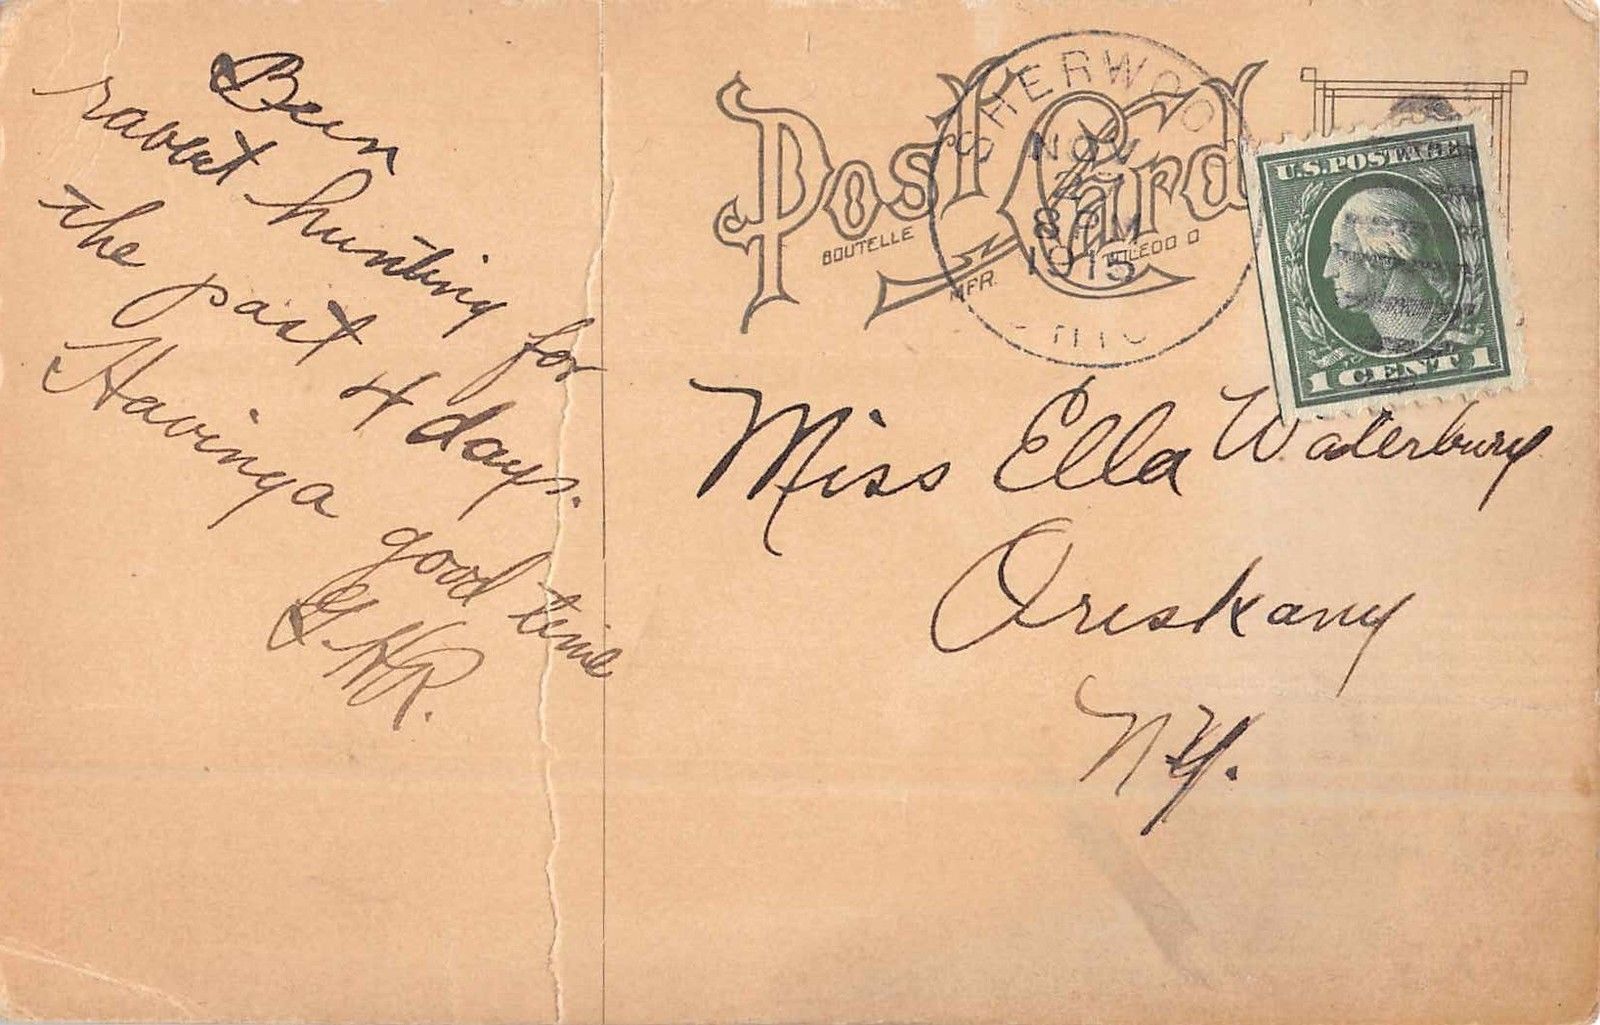 Been
rabbit hunting for
the past 4 days.
Having a good time
G.H.R.
Post Card
BOUTELLE
MFR.
TOLEDO O
SHERWOOD
NOV
2
8 PM
1915
OHIO
U.S.POSTAGE
1 CENT 1
Miss Ella Waterbury
Oriskany
N.Y.